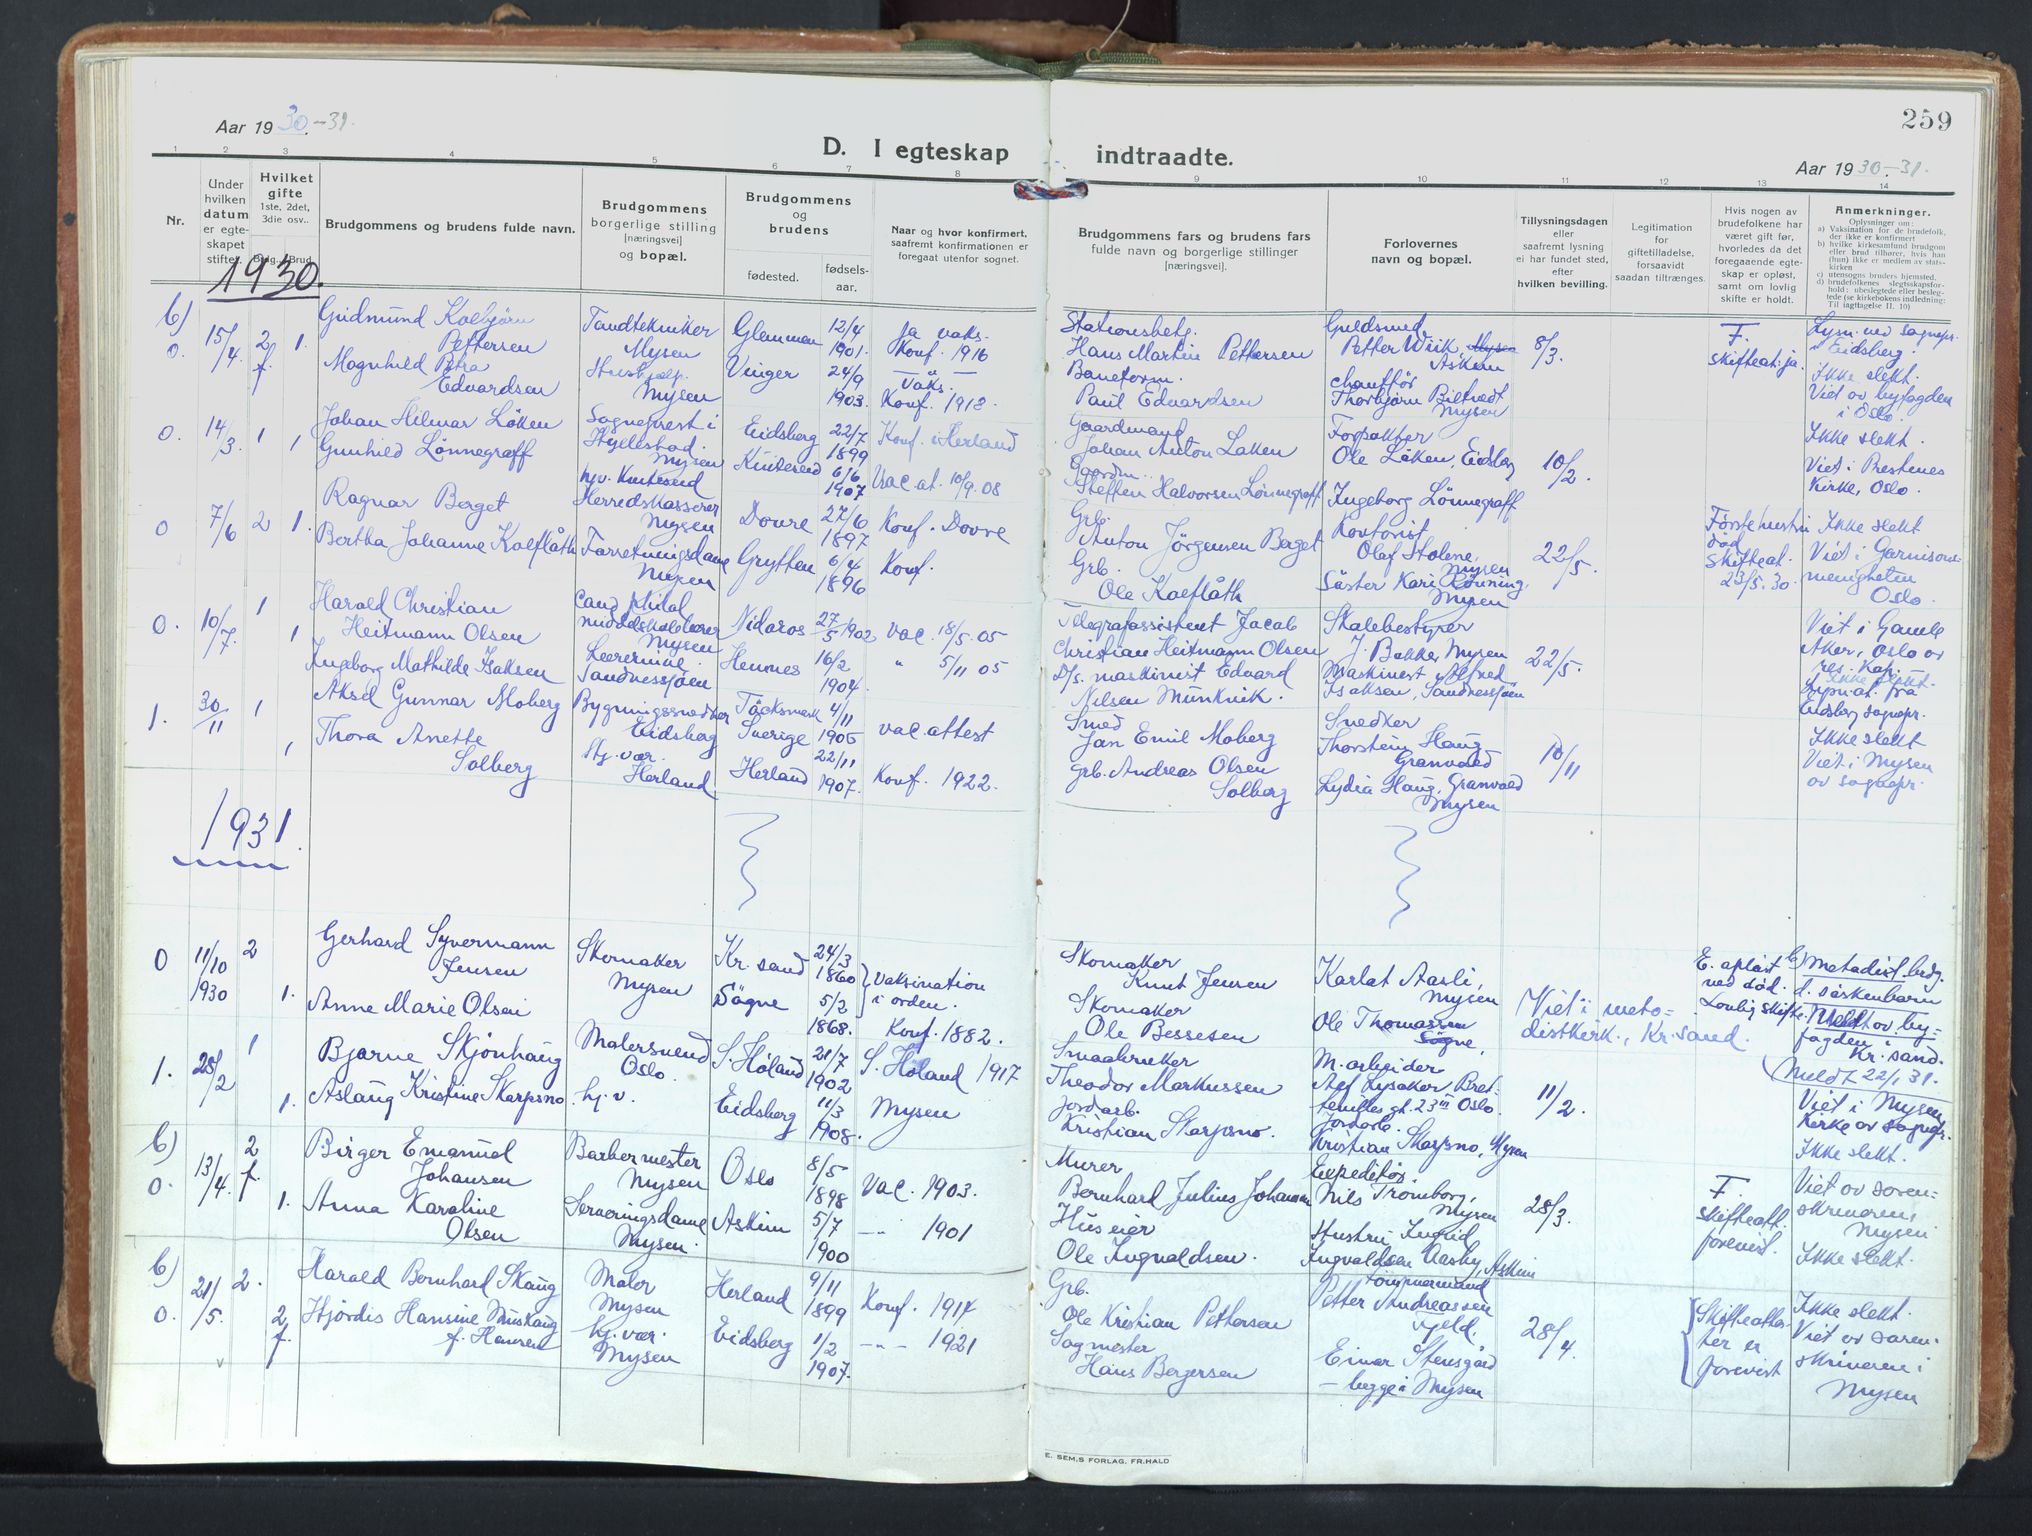 259
Aar 1930-31.
D. I egteskap indtraadte.
Aar 1930-31.
1 2 3 4 5 6 7 8 9 10 11 12 13 14
Nr.
Under hvilken datum er egteskapet stiftet.
Hvilket gifte
1ste, 2det, 3die osv..
Brdg. Brud
Brudgommens og brudens fulde navn.
Brudgommens borgerlige stilling [næringsvei] og bopæl.
Brudgommens og brudens
fødested.
fødsels-aar.
Naar og hvor konfirmert, saafremt konfirmationen er foregaat utenfor sognet.
Brudgommens fars og brudens fars fulde navn og borgerlige stillinger [næringsvei].
Forlovernes navn og bopæl.
Tillysningsdagen eller saafremt lysning ei har fundet sted, efter hvilken bevilling.
Legitimation for giftetilladelse, forsaavidt saadan tiltrænges.
Hvis nogen av brudefolkene har været gift før, hvorledes da det foregaaende egteskap er opløst, samt om lovlig skifte er holdt.
Anmerkninger.
Oplysninger om:
a) Vaksination for de brudefolk, der ikke er konfirmert
b) hvilke kirkesamfund brudgom eller brud tilhører, hvis han (hun) ikke er medlem av statskirken
c) utensogns bruders hjemsted.
d) brudefolkenes slegtsskapsforhold: ubeslegtede eller beslegtede (se kirkebokens indledning: Til iagttagelse II. 10)
1930.
b)
0. 15/4. 2 f. 1.
Gudmund Kolbjörn Pettersen
Tandtekniker Mysen
Glemmen 12/4 1901.
ja vaks. Konf. 1916
Stationsbetj. Hans Martin Pettersen
Guldsmed Petter Wiik Askim
8/3.
F. skifteat. ja.
Lysn. ved sognepr. i Eidsberg.
Magnhild Petra Edvardsen
Mysen
Vinger 24/9 1903.
Vaks. Konf. 1918.
Baneform. Paul Edvardsen
chaufför Thorbjörn Mysen
Ikke slekt.
Viet av byfogden i Oslo.
0. 14/3. 1 1
Johan Hilmar Löken
Sogneprest i Hyllestad. Mysen
Eidsberg 22/7 1899
Konf. i Herland
Gaardmand Johan Anton Løken
Forpakter Ole Löken, Eidsberg
10/2.
Ikke slekt.
Gunhild Lönnegraff
hjv. Kviteseid
Kviteseid 6/6 1907
Vac. at. 10/9. 08
Gaardm. Steffen Halvorsen Lönnegraff
Ingeborg Lönnegraff
Viet i Prestenes Kirke, Oslo.
0 7/6 2 1.
Ragnar Berget
Herredskasserer Mysen
Dovre 27/6 1897
Konf. Dovre
Grb. Anton Jörgensen Berget
Kontorist Olaf Stolene, Mysen
22/5.
Förste hustru död skifteat. 23/5. 30.
Ikke slekt
Bertha Johanne Kolflåth
Forretningsdame Mysen
Grytten 6/4 1896
Konf.
Grb. Ole Kolflåth
Söster Kari Rönning, Mysen
Viet i Garnisonsmenigheten Oslo.
0. 10/7. 1 1
Harald Christian Heitmann Olsen
cand. philol. Mysen
Nidaros 27/5 1902
vac. 18/5. 05
Telegrafassistent Jacob Christian Heitmann Olsen
Skolebestyrer J. Bakke, Mysen
22/5.
Viet i Gamle Aker, Oslo av res. Kap.
Ingeborg Mathilde Isaksen
Lærerinne. Sandnessjöen
Hemnes 16/2 1904.
" 5/11 05
D/s. maskinist Edvard Nilsen Munkvik.
Maskinist Alfred Isaksen, Sandnessjöen
Ikke slekt.
Lysn.at. fra Eidsberg sognepr.
1. 30/11 1 1
Aksel Gunnar Moberg
Bygningssnedker Eidsberg
Töcksmark Sverige 4/11 1905
vac. attest
Smed Jan Emil Moberg
Snedker Thorstein Haug Granvold
10/11
Ikke slekt
Thora Anette Solberg
Stj. vær. Herland
Herland 22/11 1907.
Konf. 1922.
Grb. Andreas Olsen Solberg
Lydia Haug, Granvold Mysen
Viet i Mysen av sognepr.
1931.
0 11/10 1930 2 1.
Gerhard Syvermann Jensen
Skomaker Mysen
Kr. sand 24/3 1860
Vaksination i orden.
Skomaker Knut Jensen
Karlat Aasli, Mysen
Viet i metodistkerk., Kr. sand.
E. oplöst ved död. Lovlig skifte.
b) metodist. brdg.
d. söskenbarn
Anne Marie Olsen
Sögne 5/2 1868.
Konf. 1882.
Skomaker Ole Bessesen
Ole Thomassen Sögne,
Meldt av byfogden i Kr. sand.
Meldt 22/1 31.
1. 28/2 1 1.
Bjarne Skjönhaug
Malersvend Oslo.
S. Höland 21/7 1902
S. Höland 1917
Smaabruker Theodor Markussen
M. arbeider Lysaker Oslo.
11/2.
Viet i Mysen Kirke av sognepr.
Aslaug Kristine Skarpsno
hj. v.
Eidsberg 11/3 1908.
Mysen
Jordarb. Kristian Skarpsno.
Jordarb. Kristian Skarpsno, Mysen
Ikke slekt.
b)
0. 13/4. 2 f. 1.
Birger Emanuel Johansen
Barbermester Mysen
Oslo 8/5 1898
Vac. 1903.
Murer Bernhard Julius Johansen
Expeditör Nils Tromborg, Mysen
28/3.
F. skifteatt. forevist.
Viet av sorenskriveren, Mysen
Anna Karoline Olsen
Serveringsdame Mysen
Askim 5/7 1900
-"- 1901
Huseier Ole Ingvaldsen.
Hustru Ingrid Ingvaldsen Aasby, Askim
Ikke slekt.
b)
0. 21/5. 2. 2 f.
Harald Bernhard Skaug
Maler Mysen
Herland 9/11 1899
Konf. 1914
Grb. Ole Kristian Pettersen
Tömmermand Petter Andreassen
28/4.
Skifteatter er forevist
Ikke slekt.
Hjördis Hansine f. Hansen
hj. vær. Mysen
Eidsberg 1/2 1907.
-"- 1921
Sagmester Hans Bergersen
Einar Stensgård - begge i Mysen
Viet av sorenskriveren i Mysen
E. SEM,S FORLAG, FR.HALD